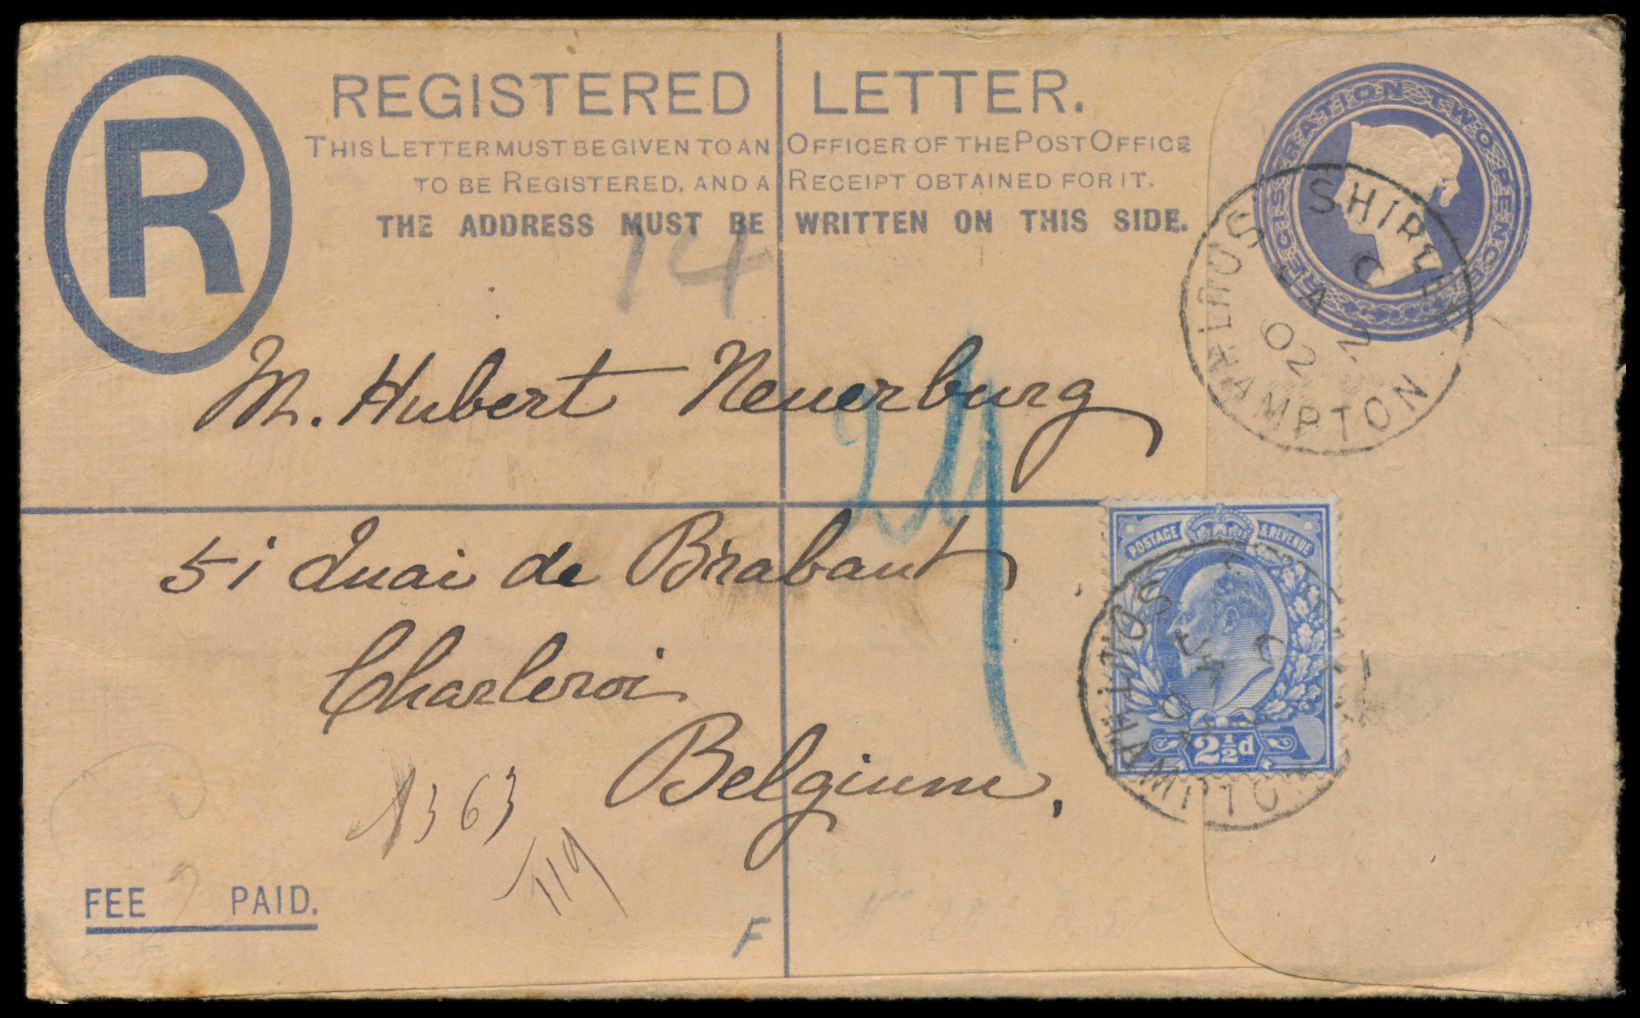 R
REGISTERED LETTER.
THIS LETTER MUST BE GIVEN TO AN OFFICER OF THE POST OFFICE
TO BE REGISTERED, AND A RECEIPT OBTAINED FOR IT.
THE ADDRESS MUST BE WRITTEN ON THIS SIDE.
REGISTRATION TWO PENCE
SHIRLEY SOUTHAMPTON
C
JA 2
02
14
M. Hubert Neuerburg
51 Quai de Brabant
Charleroi
Belgium.
POSTAGE & REVENUE
2½d
SOUTHAMPTON
363
119
FEE PAID.
F